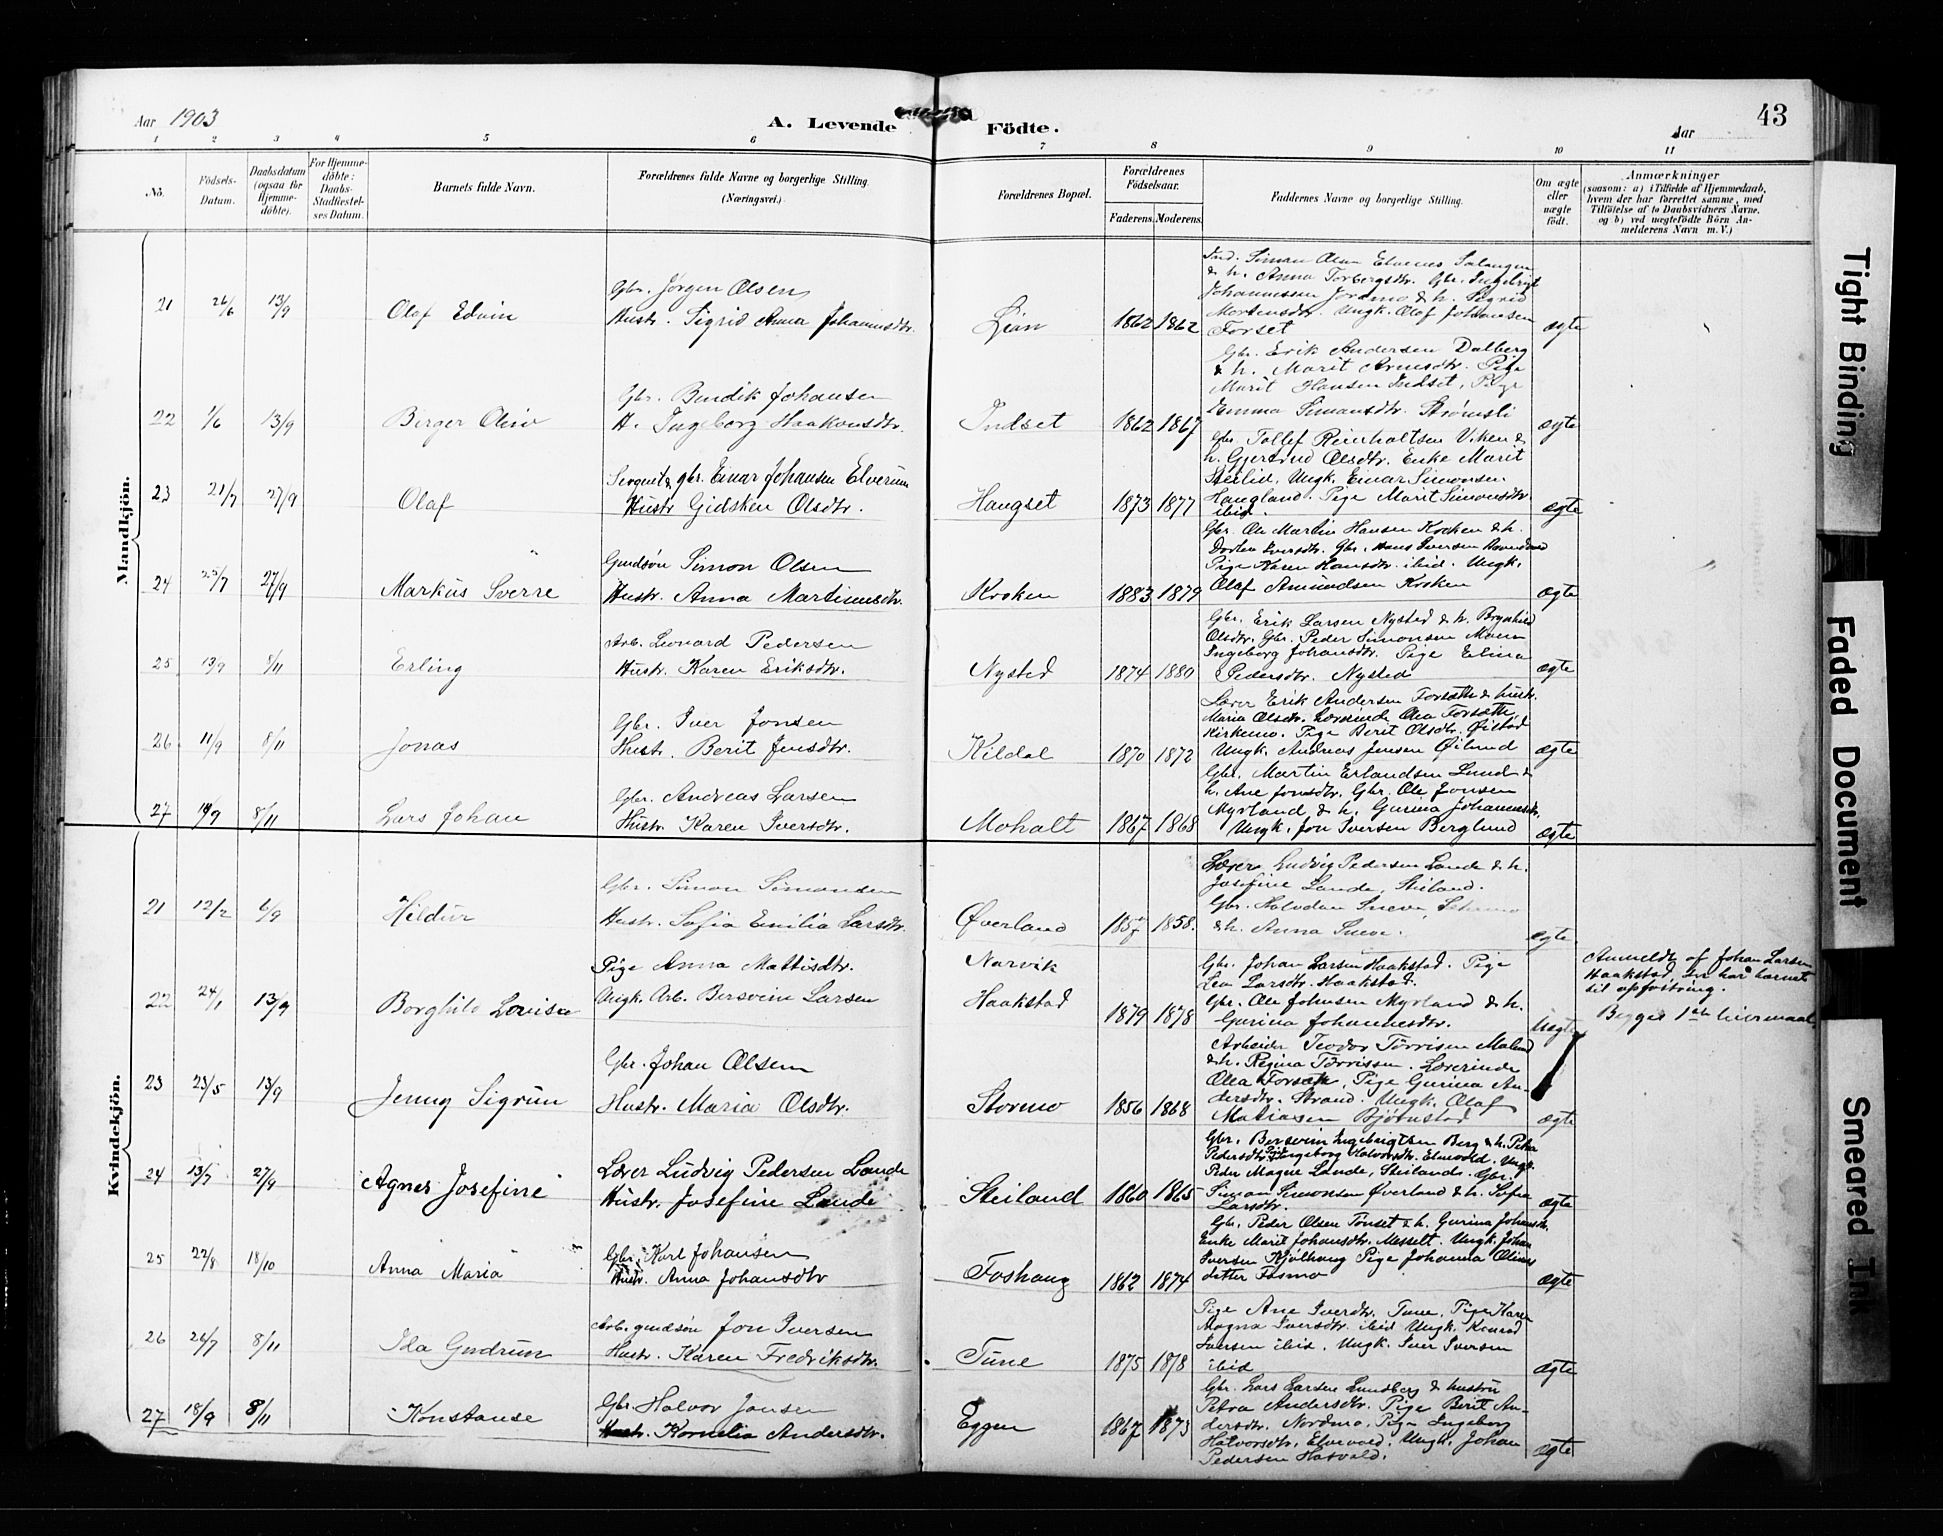 Aar 1903
A. Levende Födte.
Aar
43
1 2 3 4 5 6 7 8 9 10 11
No.
Födsels-Datum.
Daabsdatum (ogsaa for Hjemme-döbte).
For Hjemme-döbte: Daabs-Stadfæstel-ses Datum.
Barnets fulde Navn.
Forældrenes fulde Navne og borgerlige Stilling (Næringsvei.)
Forældrenes Bopæl.
Forældrenes Födselsaar.
Faderens. Moderens.
Faddernes Navne og borgerlige Stilling.
Om ægte eller uægte födt.
Anmærkninger
(saasom: a) i Tilfælde af Hjemmedaab,
hvem der har forrettet samme, med
Tilföielse af to Daabsvidners Navne,
og b) ved uægtefödte Börn An-
melderens Navn m. V.)
Mandkjön.
21 26/6 13/9 Olaf Edvin
Gbr. Jørgen Olsen
Hustr. Sigrid Anna Johannsdtr.
Lian 1862 1862
Ind. Simon Olsen Elvenes Salangen
& h. Anna Torbergsdtr. Gbr. Ingebrigt
Johannessen Jormo & h. Sigrid
Mortensdtr. Ungk. Olaf Johansen
Forset
ægte
22 1/6 13/9 Birger Oliv
Gbr. Bendik Johansen
H. Ingeborg Haakonsdtr.
Indset 1862 1867
Gbr. Erik Andersen Dalberg
& h. Marit Arnesdtr. Pige
Marit Hansen Indset, Pige
Emma Simonsdtr. Strømsli
ægte
23 21/7 27/9 Olaf
Sergeant & gbr. Einar Johansen Elverum
Hustr Gidsken Olsdtr.
Haugset 1873 1877
Gbr. Tollef Reinholtsen Viken &
h. Gjertrud Olsdtr. Enke Marit
Steilid, Ungk. Einar Simonsen
Haugland. Pige Marit Simonsdtr
ibid.
ægte
24 25/7 27/9 Markus Sverre
Grdsøn Simon Olsen
Hustr. Anna Martinusdtr.
Kroken 1883 1879
Gbr. Ole Martin Hansen Kroken & h.
Dortea Iversdtr. Gbr. Hans Iversen
Pige Karen Hansdtr. ibid. Ungk.
Olaf Amundsen Kroken
ægte
25 13/9 8/11 Erling
Arb. Leonard Pedersen
Hustr. Karen Eriksdtr.
Nysted 1874 1880
Gbr. Erik Larsen Nysted & h. Brynhild
Olsdtr. Gbr. Peder Simonsen Moen
Ingeborg Johansdtr. Pige Elina
Pedersdtr. Nysted
ægte
26 11/9 8/11 Jonas
Gbr. Iver Jonsen
Hustr. Berit Jensdtr.
Kildal 1870 1872
Lærer Erik Andersen Forsæth & hustr.
Maria Olsdtr. Lærerinde Olea Forsæth
Kirkemo. Pige Berit Olsdtr. Øistad
Ungk. Andreas Jensen Øilund
ægte
27 14/9 8/11 Lars Johan
Gbr. Andreas Larsen
Hustr. Karen Iversdtr.
Moholt 1867 1868
Gbr. Martin Erlandsen Lund &
h. Ane Jonsdtr. Gbr. Ole Jonsen
Myrland & h. Gurina Johannesdtr.
Ungk. Jon Iversen Berglund
ægte
Kvindekjön.
21 12/2 6/9 Hildur
Gbr. Simon Simonsen
Hustr. Sofia Emilia Larsdtr.
Øverland 1857 1858.
Lærer Ludvig Pedersen Lande & h.
Josefine Lande, Steiland.
Gbr. Halvdan Sneve, Sætermo
& h. Anna Sneve.
ægte.
22 24/1 13/9 Borghild Lovisa
Pige Anna Mathisdtr.
Ungk. Arb. Bersvein Larsen
Narvik
Haakstad 1879 1878
Gbr. Johan Larsen Haakstad. Pige
Lea Larsdtr. Haakstad.
Gbr. Ole Johnsen Myrland & h.
Gurina Johannesdtr.
Uægte
Anmeldt af Johan Larsen
Haakstad, der har barnet
til opfostring.
Begges 1ste leiermaal
23 23/5 13/9 Jenny Sigrun
Gbr. Johan Olsen
Hustr. Maria Olsdtr.
Stormo 1856 1868
Arbeider Teodor Tørrisen Moland
& h. Regina Tørrissen. Lærerinde
Olea Forsæth, Pige Gurina An-
dersdtr. Strand. Ungk. Olaf
Matiasen Bjørnstad
ægte
24 13/7 27/9 Agnes Josefine
Lærer Ludvig Pedersen Lande
Hustr. Josefine Lande
Steiland 1860 1865
Gbr. Bersveim Ingebrigtsen Berg & h. Petra
Pedersdtr. Pige Ingeborg Halvorsdtr. Elvevold. Ungk.
Peder Magne Lande, Steiland. Gbr.
Simon Simonsen Øverland & h. Sofia
Larsdtr.
ægte
25 22/8 18/10 Anna Maria
Gbr. Karl Johansen
Hustr. Anna Johansdtr
Foshaug 1862 1874
Gbr. Peder Olsen Tønset & h. Gurina Johansdtr.
Enke Marit Johansdtr. Messelt. Ungk. Johan
Iversen Kjølhaug Pige Johanna Olines
datter Fosmo
ægte
26 26/7 8/11 Ida Gudrun
Arb. grdsøn Jon Iversen
Hustr. Karen Fredriksdtr.
Tune 1875 1878
Pige Ane Iversdtr. Tune, Pige Karen
Magna Iversdtr. ibid Ungk. Konrad
Iversen ibid. Ungk. Iver Iversen
ibid
ægte
27 18/9 8/11 Konstanse
Gbr. Halvor Jonsen
Hustr. Kornelia Andersdtr.
Eggen 1867 1873
Gbr. Lars Larsen Lundberg & hustru
Petra Andersdtr. Pige Berit An-
dersdtr. Nordmo, Pige Ingeborg
Halvorsdtr. Elvevold. Ungk. Johan
Pedersen Hatvold.
ægte
Tight Binding
Faded Document
Smeared Ink